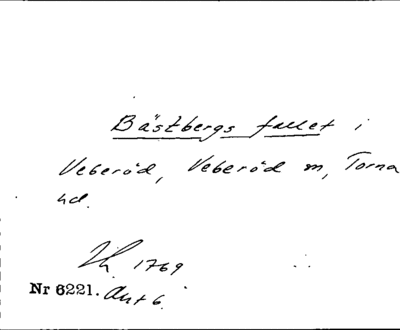 Bästbergs fallet i
Veberöd, Veberöd m, Torna
hd.
1769
Nr 6221.